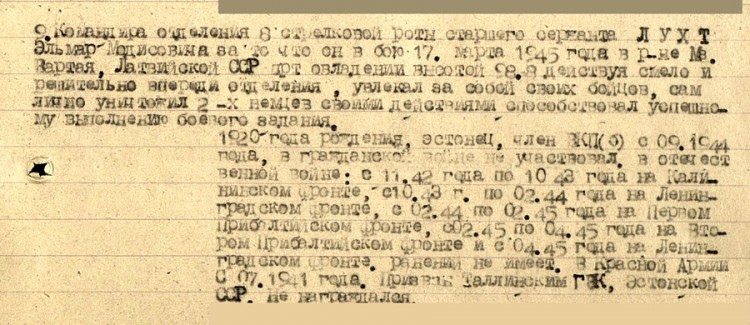 9. Командира отделения 8 стрелковой роты старшего сержанта Л У Х Т
Эльмар Модисовича за то что он в бою 17. марта 1945 года в р-не Мз.
Вартая, Латвийской ССР прт овладении высотой 98.8 действуя смело и
решительно впереди отделения , увлекал за собой своих бойцов, сам
лично уничтожил 2 -х немцев своими действиями способствовал успешно-
му выполнению боевого задания.
1920 года рождения, эстонец, член ВКП(б) с 09.1944
года, в гражданской войне не участвовал. в отечест
венной войне: с 11.42 года по 10 43 года на Кали-
нинском фронте, с10.43 г. по 02.44 года на Ленин-
градском фронте, с 02.44 по 02.45 года на Первом
Прибалтийском фронте, с02.45 по 04.45 года на Вто-
ром Прибалтийском фронте и с 04.45 года на Ленин-
градском фронте. ранений не имеет. в Красной Армии
С 07.1941 года. Призван Таллинским ГВК, Эстонской
ССР. Не награждался.